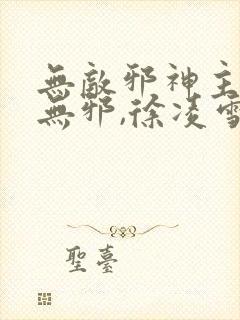 無敵邪神主
無邪,徐凌雪
聖臺